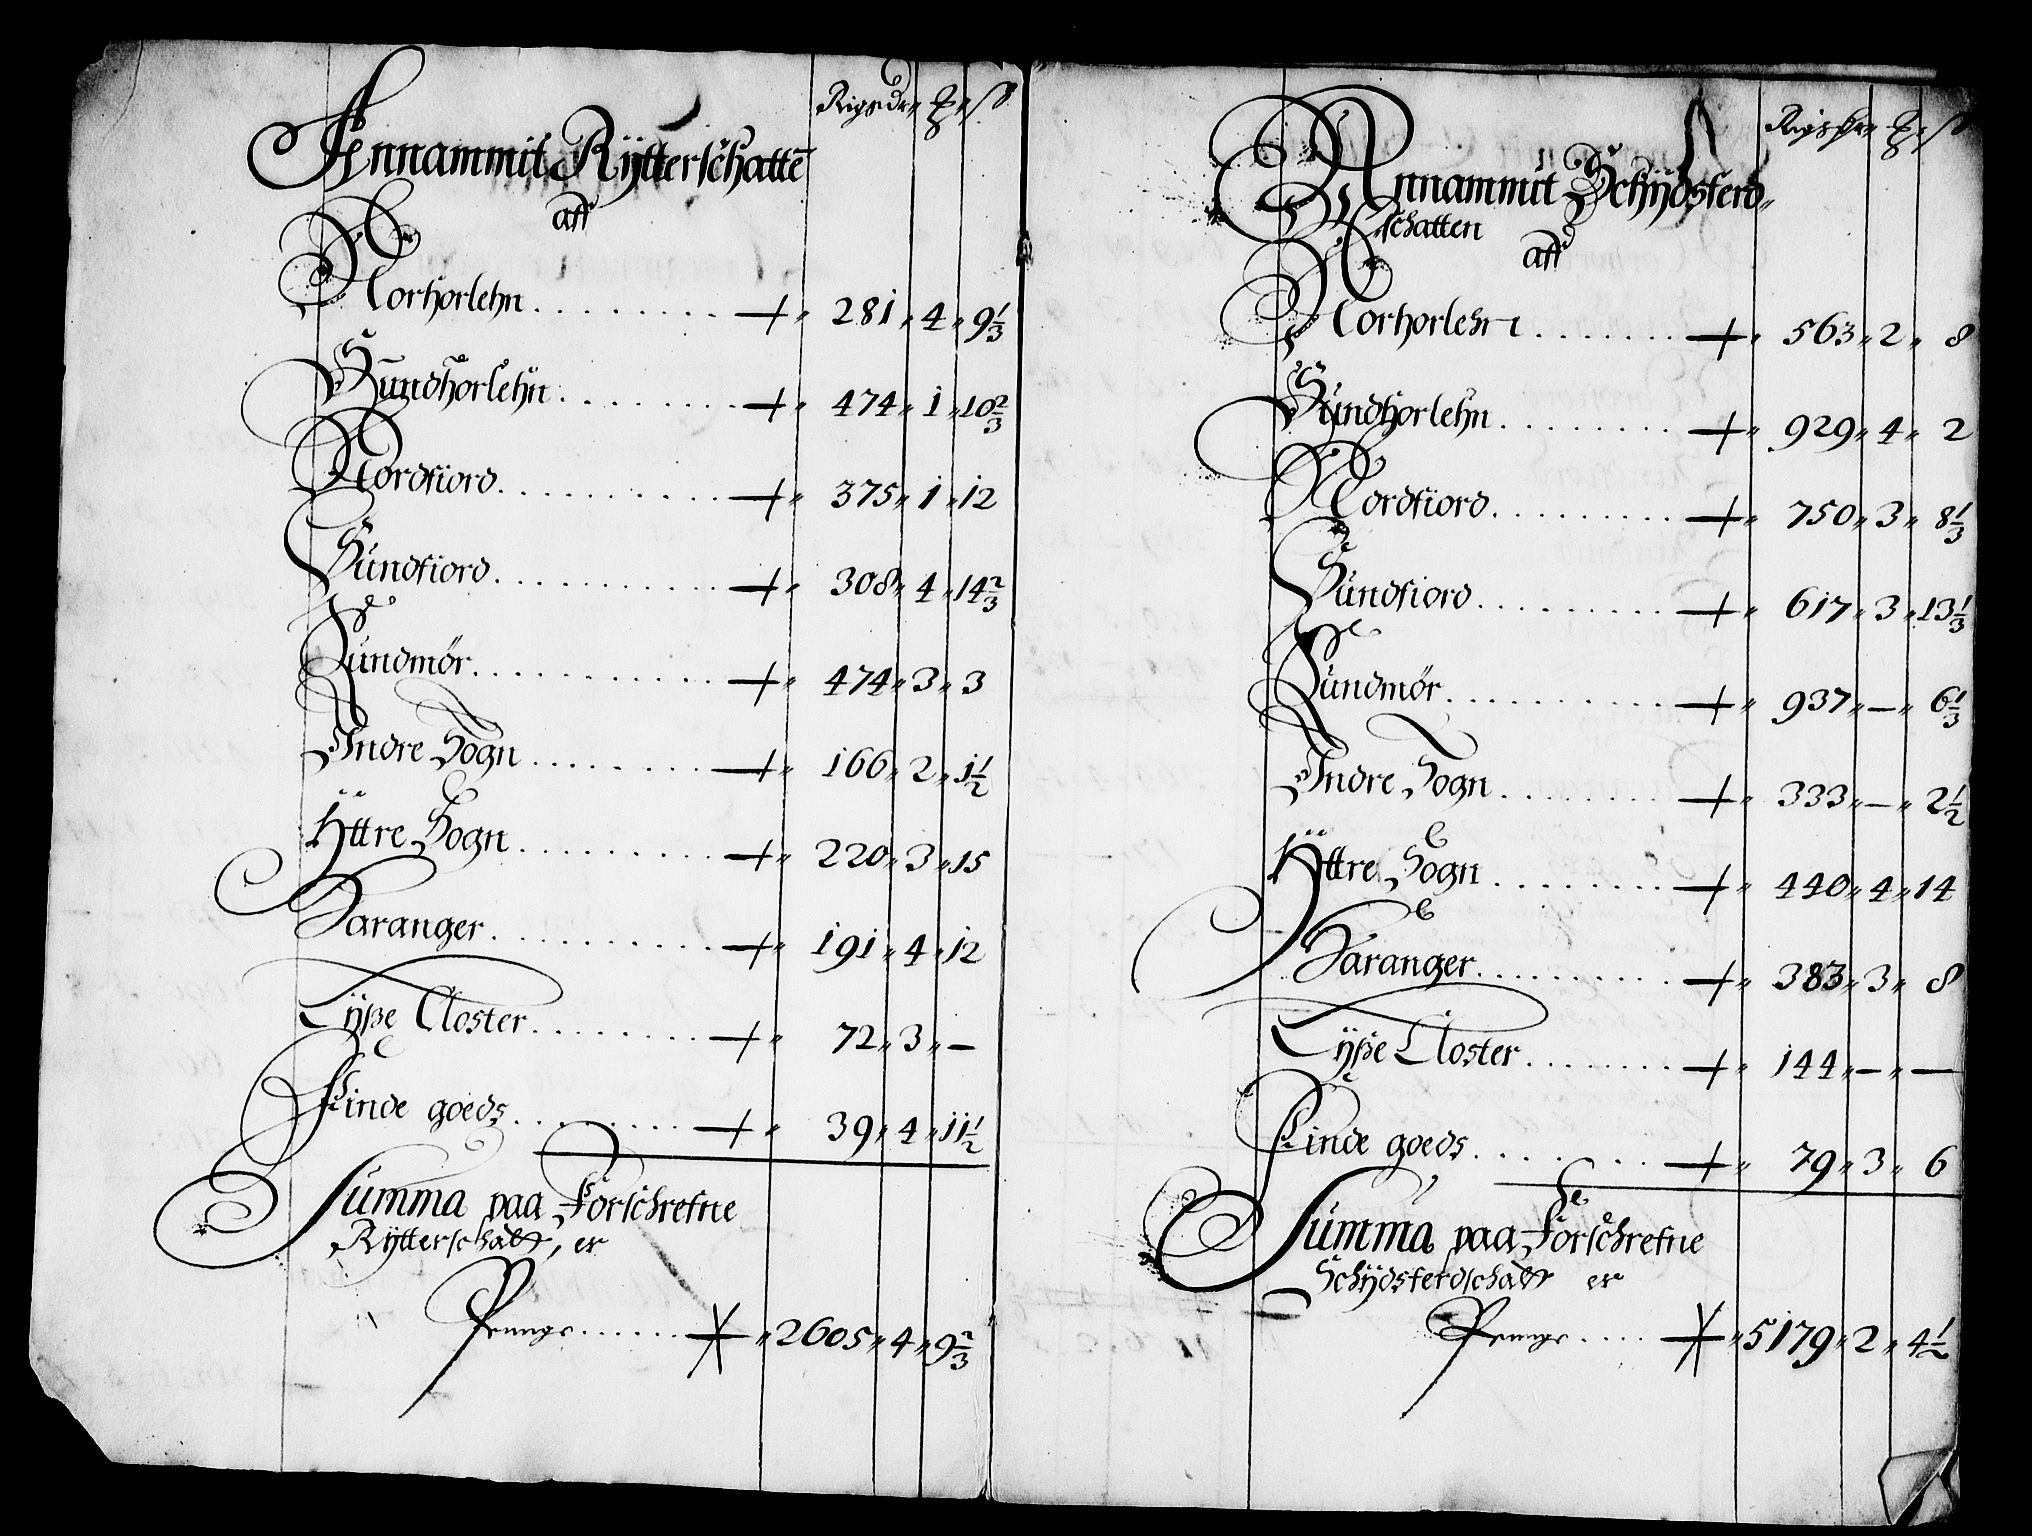 Annammit Rÿtterschatte
aff
Norhorlehn . . . . . . . . . 281 „ 4 „ 9 1/3
Sundhorlehn . . . . . . . . 474 „ 1 „ 10 2/3
Nordfiord . . . . . . . . . . 375 „ 1 „ 12
Sundfiord . . . . . . . . . . 308 „ 4 „ 14 2/3
Sundmør . . . . . . . . . . 474 „ 3 „ 3
Indre Sogn . . . . . . . . 166 „ 2 „ 1 1/2
Ÿttre Sogn . . . . . . . . 220 „ 3 „ 15
Saranger . . . . . . . . . . 191 „ 4 „ 12
Lÿße Closter . . . . . . . . 72 „ 3 „ —
Finde goeds . . . . . . . . 39 „ 4 „ 11 1/2
Summa paa Forschrefne
Rÿtterschatt, er
Penge . . . . . . 2605 „ 4 „ 9 2/3
Annammit Schÿdsferd„
schatten
aff
Norhorlehn . . . . . . . 563 „ 2 „ 8
Sundhorlehn . . . . . . . . 929 „ 4 „ 2
Nordfiord . . . . . . . . . 750 „ 3 „ 8 1/3
Sundfiord . . . . . . . . . 617 „ 3 „ 13 1/3
Sundmør . . . . . . . . . 937 „ — „ 6 1/3
Indre Sogn . . . . . . . . 333 „ — „ 2 1/2
Ÿttre Sogn . . . . . . . . 440 „ 4 „ 14
Saranger . . . . . . . . . 383 „ 3 „ 8
Lÿße Closter . . . . . . . 144 „ — „ —
Finde goeds . . . . . . . 79 „ 3 „ 6
Summa paa Forschrefne
Schÿdsferdschatt er
Penge . . . . 5179 „ 2 „ 4 1/2